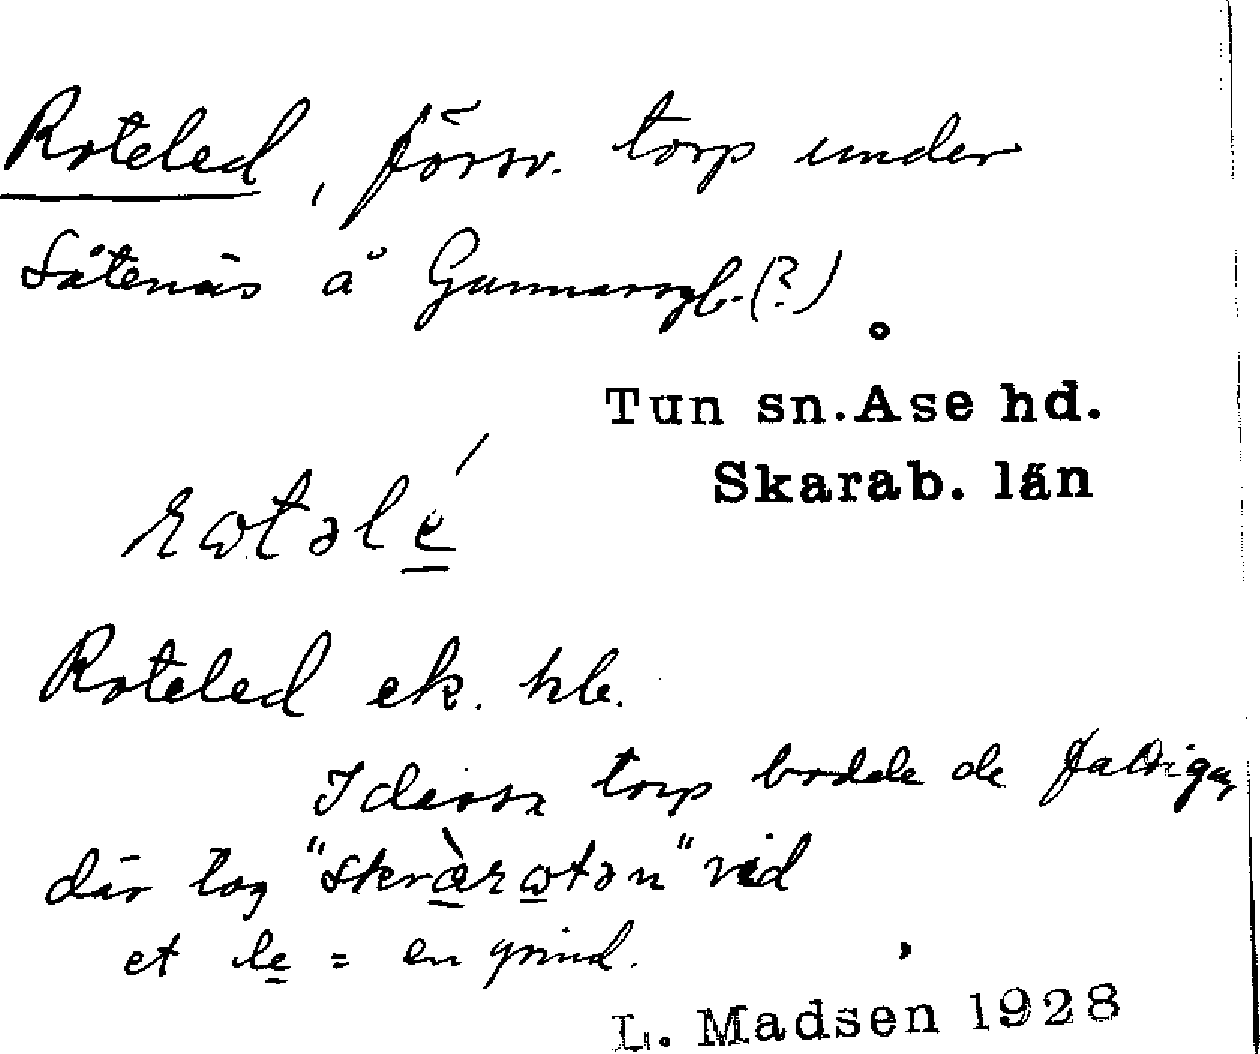 Roteled, försv. torp under
Såtenäs å Gunnarsgb.(?)
Tun sn. Åse hd.
Skarab. län
rωtəlé
Roteled ek. hb.
I dessa torp bodde de fattiga,
där tog "skrὰrωtən" vid
et le = en grind.
L. Madsen 1928